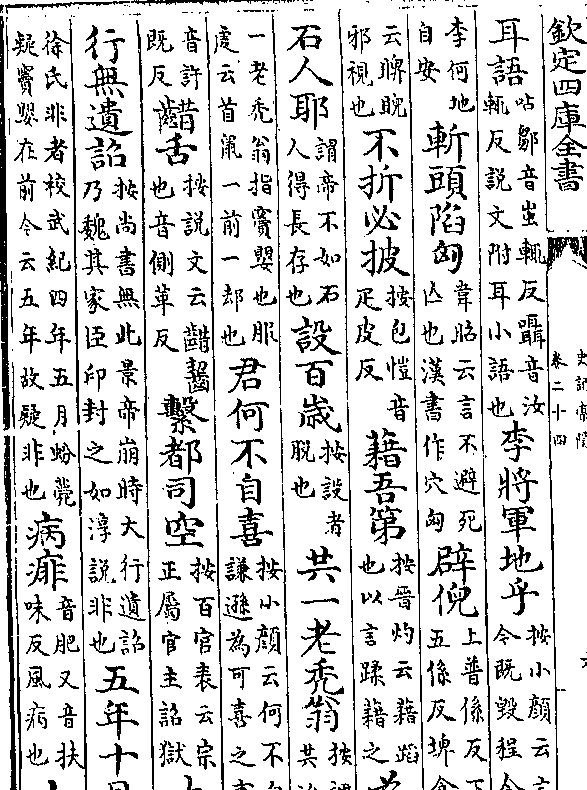 欽定四庫全書
史記索隱
卷二十四
耳語呫鄒音蚩輒反囁音汝輒反說文附耳小語也李將軍地乎按小顏云言今既毀程令
李何地自安斬頭陷匈韋昭云言不避死亾也漢書作穴匈辟倪上普係反下五係反埤倉
云睥睨邪視也不折必披按包愷音疋皮反藉吾第按晉灼云藉蹈也以言蹂藉之
石人耶謂帝不如石人得長存也設百歲按設者脫也共一老禿翁按謂共治
一老禿翁指竇嬰也服䖏云首鼠一前一却也君何不自喜按小顏云何不自謙遜為可喜之事
音許既反齰舌按說文云齰齧也音側革反繫都司空按百官表云宗正屬官主詔獄
行無遺詔按尚書無此景帝崩時大行遺詔乃魏其家臣印封之如淳說非也五年十月
徐氏非者校武紀四年五月蚡薨疑竇嬰在前今云五年故疑非也病痱音肥又音扶味反風病也